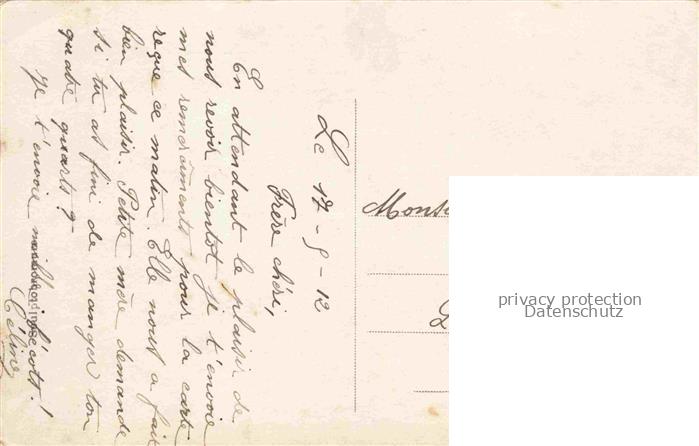 Le 17-9-12
Frère chéri,
En attendant le plaisir de
nous revoir bientot je t'envoie
mes remerciments pour la carte
reçue ce matin. Elle nous a fait
bien plaisir. Petite mère demande
si tu as fini de manger ton
quatre quarts?
Je t'envoie mille bécots!
Céline
privacy protection
Datenschutz